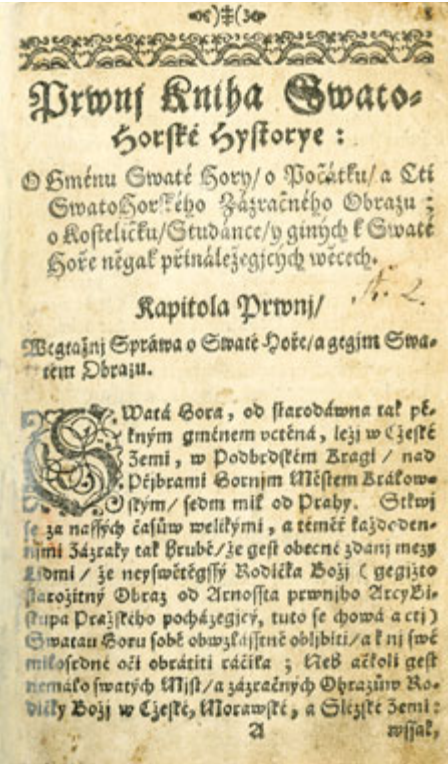 Prwnj Kniha Swato-
Horské Hystorye :
O Gménu Swaté Hory/ o Počátku/ a Cti
SwatoHorského Zázračného Obrazu ;
o Kosteličku/Studánce/y giných k Swaté
Hoře něgak přináležegjcých wěcech.
A. 2.
Kapitola Prwnj/
Wegtažnj Spráwa o Swaté Hoře/a gegjm Swa-
tém Obrazu.
SWatá Hora, od starodáwna tak pě-
kným gménem vctěná, ležj w Cžeské
Zemi, w Podbrdském Kragi / nad
Přjbrami Hornjm Městem Králow-
ským/ sedm mil od Prahy. Stkwj
se za nassých časůw welikými, a téměř každeden-
njmi Zázraky tak hrubě/že gest obecné zdanj mezy
Lidmi / že neyswětěgssý Rodička Božj ( gegjžto
starožitný Obraz od Arnossta prwnjho ArcyBi-
skupa Pražského pocházegjcý, tuto se chowá a ctj )
Swatau Horu sobě obwzlásstně obljbiti/a k nj swé
milosrdné oči obrátiti ráčila ; Neb ačkoli gest
nemálo swatých Mjst/a zázračných Obrazůw Ro-
dičky Božj w Cžeské, Morawské, a Slézské Zemi:
A wssak,